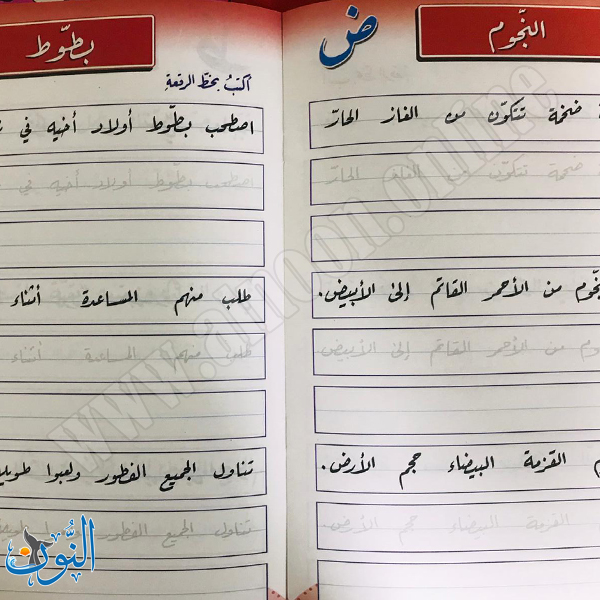 النّجوم
ض
ضخمة تتكوّن من الغاز الحارّ
ضخمة تتكوّن من الغاز الحارّ
من الأحمر القاتم إلى الأبيض.
من الأحمر القاتم إلى الأبيض
القزمة البيضاء حجم الأرض.
القزمة البيضاء حجم الأرض
بطّوط
أكتبُ بخطّ الرقعةِ
اصطحب بطّوط أولاد أخيه في
اصطحب بطّوط أولاد أخيه في
طلب منهم المساعدة أثناء
طلب منهم المساعدة أثناء
تناول الجميع الفطور ولعبوا
تناول الجميع الفطور ولعبوا
النُّون
www.alnoon.online